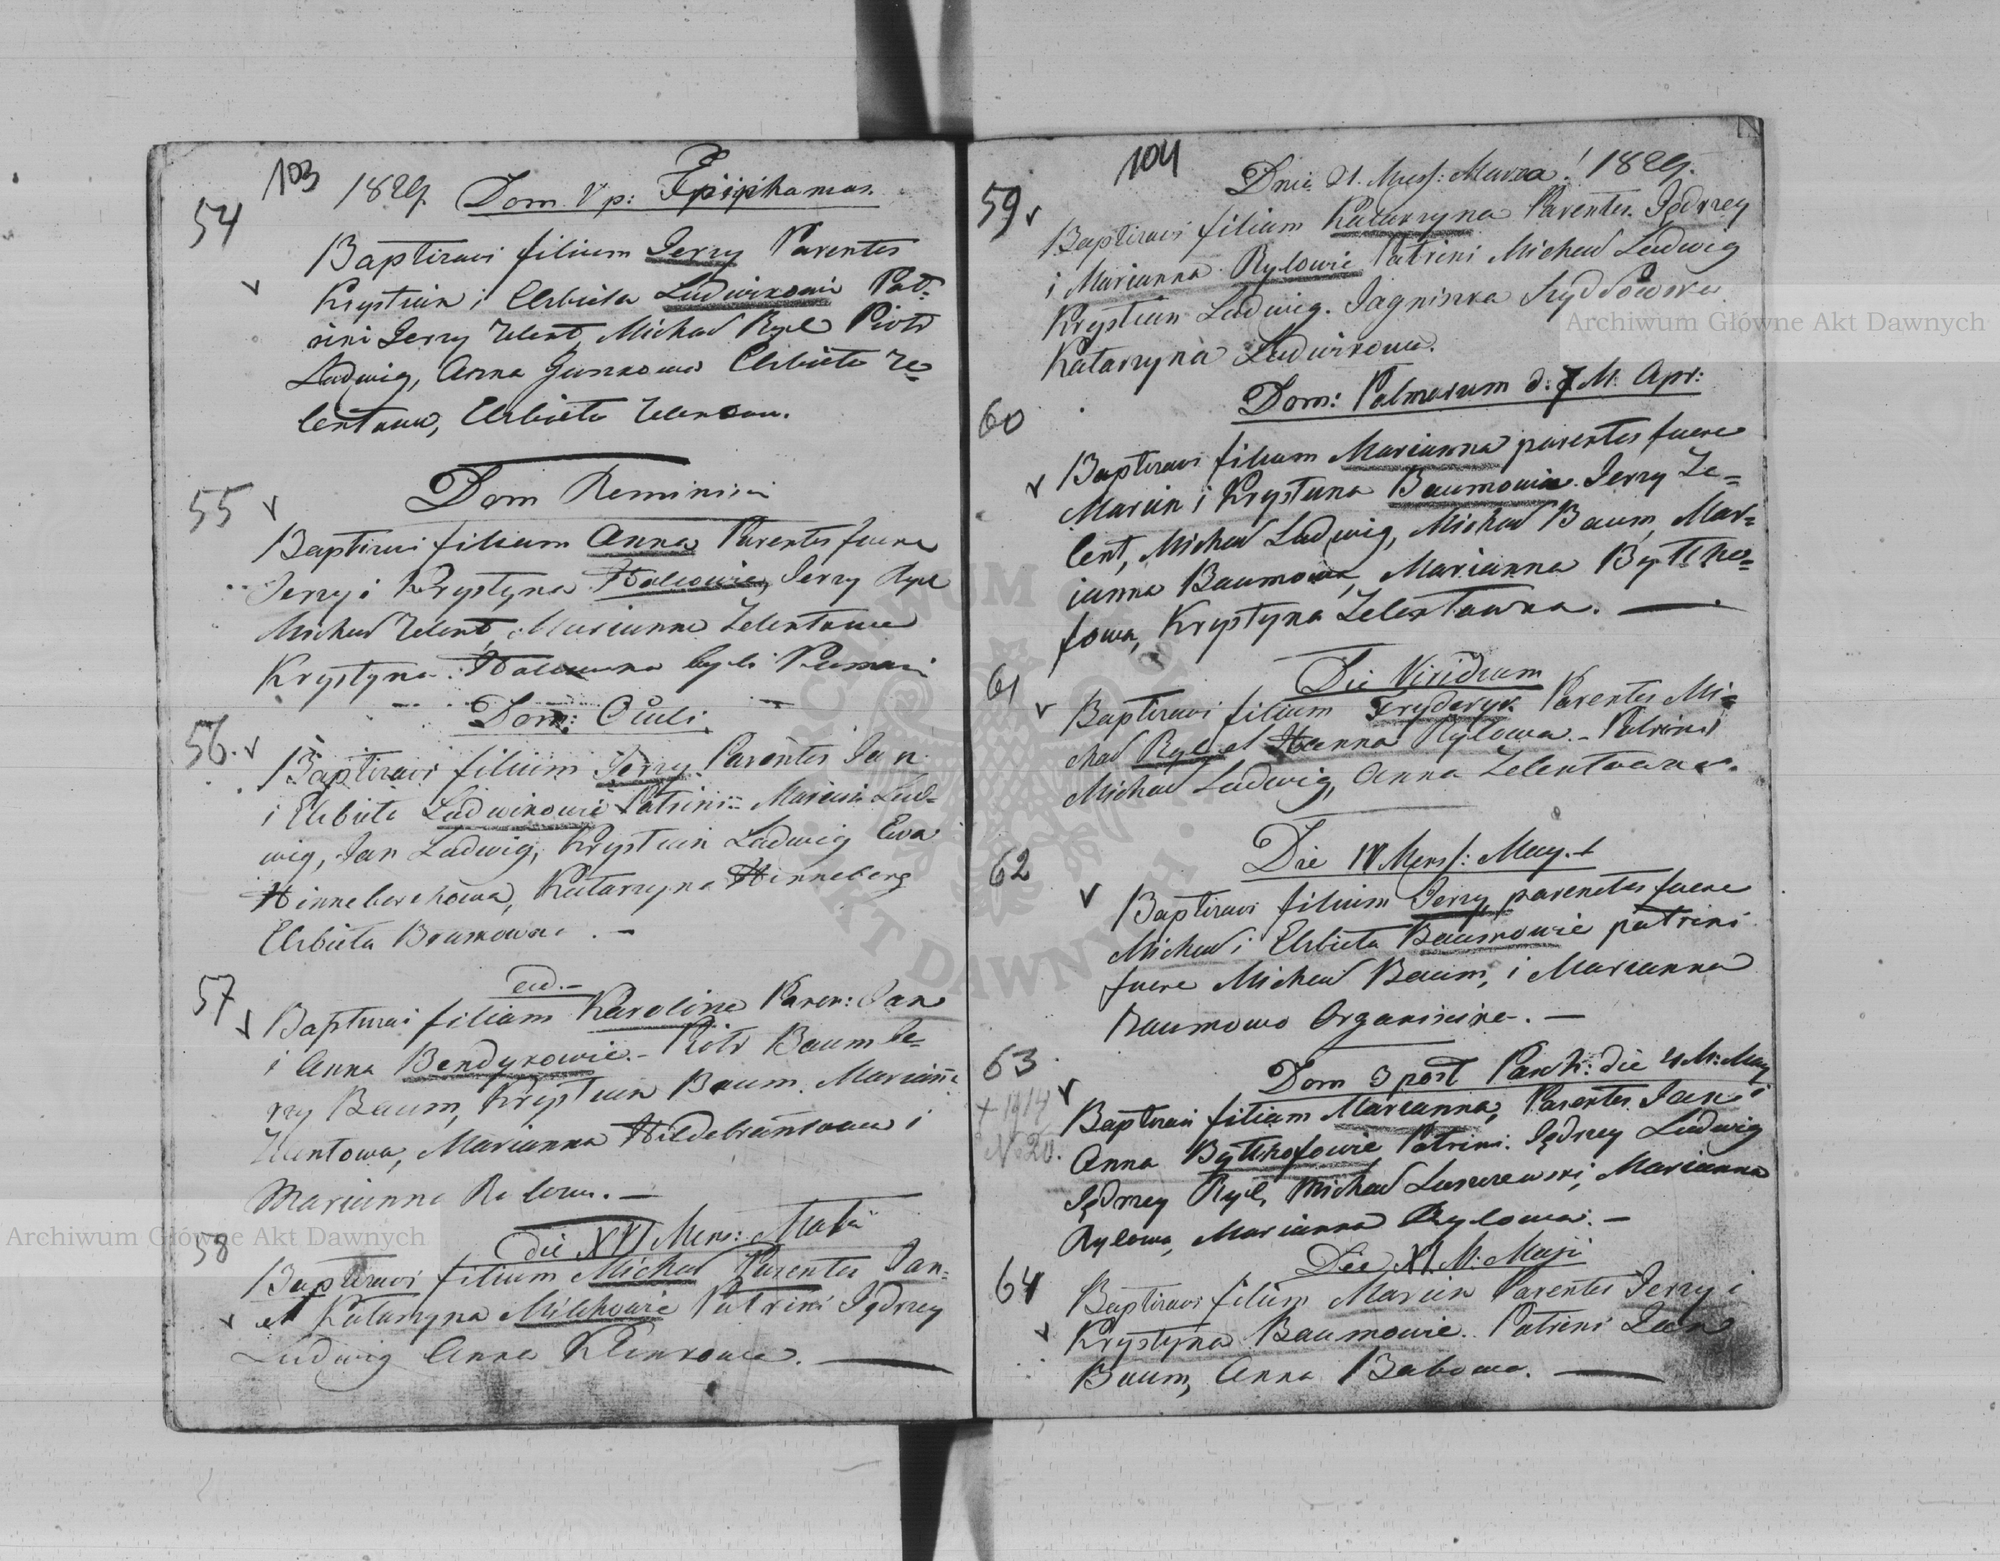 103
1829. Dom V p: Epiphanias.
54
Baptizavi filium Jerzy Parentes
Krystian i Elzbieta Ludwikowie Pat=
rini Jerzy Zelent, Michał Ryl Piotr
Ludwig, Anna Elzbieta Ze=
lentowa, Elzbieta
55
Dom Reminisci
Baptizavi filiam Anna Parentes fuere
Jerzy i Krystyna Jerzy Ryl
Michał Zelent, Marianna Zelentowa
Krystyna byli
56.
Dom: Oculi.
Baptizavi filium Jerzy Parentes Jan
i Elzbieta Ludwikowie Patrini: Marcin Lud=
wig, Jan Ludwig, Krystian Ludwig Ewa
Hinneberchowa, Katarzyna Hinneberg
Elzbieta
57
ead.-
Baptizavi filiam Karolina Paren: Jan
i Anna Bendykowie.- Piotr Baum Je=
rzy Baum, Krystian Baum. Marianna
Zelentowa, Marianna Hildebrantowa i
Marianna . -
58
die XVI Mens:
Baptizavi filium Michał Parentes Jan
et Katarzyna Milchowie Patrini Jędrzey
Ludwig Anna Klinkowa. —
104
Dnia 21. Mies: Marca! 1829.
59
Baptizavi filium Katarzyna Parentes. Jędrzey
i Marianna Rylowie Patrini Michał Ludwig
Krystian Ludwig. Jagniszka Szydłowska
Katarzyna Ludwikowa.
60
Dom: Palmarum d: 7 M. Apr:
Baptizavi filiam Marianna parentes fuere
Marcin i Krystina Baumowie. Jerzy Ze=
lent, Michał Ludwig, Michał Baum, Mar=
ianna Baumowa, Marianna Byttko=
fowa, Krystyna Zelentowna. —
61
Die Viridium
Baptizavi filium Fryderyk Parentes Mi=
chał Ryl et Hanna Rylowa. - Patrini
Michał Ludwig, Anna Zelentowna.
62
Die IV Mens: May.
Baptizavi filium Jerzy parentes fuere
Michał i Elzbieta Baumowie patrini
fuere Michał Baum, i Marianna
Baumowa . -
63
+ 1914
N. 20.
Dom 3 post Pasch: die M: May
Baptizavi filiam Marianna, Parentes Jan i
Anna Byttkofowie Patrini: Jędrzey Ludwig
Jędrzey Ryl, Michał Laszczewski, Marianna
Rylowa, Marianna Rylowa. -
64
Die XI. M: Maji
Baptizavi filium Marcin Parentes Jerzy i
Krystyna Baumowie. Patrini Jan
Baum, Anna Babowa. —
Archiwum Główne Akt Dawnych
Archiwum Główne Akt Dawnych